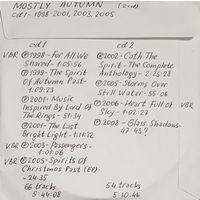 MOSTLY AUTUMN (2cd)
cd1-1998-2001, 2003, 2005
cd1
VBR ℗1998-For All We
Shared-1:05:56
℗1999-The Spirit
Of Autumn Past-
1:09:23
℗2001-Music
Inspired By Lord Of
The Rings-51:34
℗2001-The Last
Bright Light-1:11:12
VBR ℗2003-Passengers-
1:01:06
VBR ℗2005-Spirits Of
Christmas Past (EP)-
-24:35
66 tracks
5:44:08
cd2
℗2002-Cath The
Spirit-The Complete
Anthology-2:25:28
℗2005-Storms Over
Still Water-55:06
℗2006-Heart Full of
Sky-1:02:23
℗2008-Glass Shadows-
47:43?
54 tracks
5:10:44